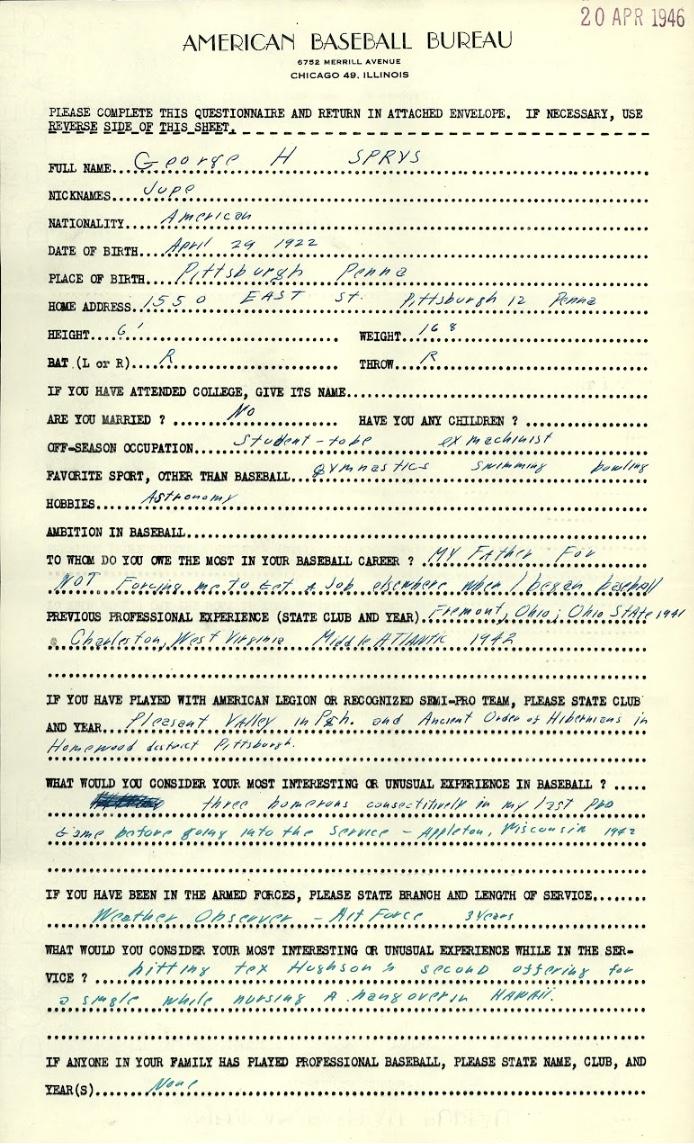 20 APR 1946
AMERICAN BASEBALL BUREAU
6752 MERRILL AVENUE
CHICAGO 49, ILLINOIS
PLEASE COMPLETE THIS QUESTIONNAIRE AND RETURN IN ATTACHED ENVELOPE. IF NECESSARY, USE
REVERSE SIDE OF THIS SHEET.
FULL NAME George H SPRYS
NICKNAMES Jupe
NATIONALITY American
DATE OF BIRTH April 29 1922
PLACE OF BIRTH Pittsburgh Penna
HOME ADDRESS 1550 EAST St. Pittsburgh 12 Penna
HEIGHT 6' WEIGHT 168
BAT (L or R) R THROW R
IF YOU HAVE ATTENDED COLLEGE, GIVE ITS NAME
ARE YOU MARRIED ? No HAVE YOU ANY CHILDREN ?
OFF-SEASON OCCUPATION Student-tobe ex machinist
FAVORITE SPORT, OTHER THAN BASEBALL gymnastics swimming bowling
HOBBIES Astronomy
AMBITION IN BASEBALL
TO WHOM DO YOU OWE THE MOST IN YOUR BASEBALL CAREER ? MY Father For
NOT Forcing me to get a job elsewhere when I began baseball
PREVIOUS PROFESSIONAL EXPERIENCE (STATE CLUB AND YEAR) Fremont, Ohio; Ohio State 1941
Charleston, West Virginia Middle ATLANTIC 1942
IF YOU HAVE PLAYED WITH AMERICAN LEGION OR RECOGNIZED SEMI-PRO TEAM, PLEASE STATE CLUB
AND YEAR Pleasant Valley in Pgh. and Ancient Order of Hibernians in
Homewood district Pittsburgh.
WHAT WOULD YOU CONSIDER YOUR MOST INTERESTING OR UNUSUAL EXPERIENCE IN BASEBALL ?
three homeruns consectitively in my last pro
Game before going into the service - Appleton, Wisconsin 1942
IF YOU HAVE BEEN IN THE ARMED FORCES, PLEASE STATE BRANCH AND LENGTH OF SERVICE
Weather Observer - Air Force 3 years
WHAT WOULD YOU CONSIDER YOUR MOST INTERESTING OR UNUSUAL EXPERIENCE WHILE IN THE SER-
VICE ? hitting tex Hughson's second offering for
a single while nursing A hangover in HAWAII.
IF ANYONE IN YOUR FAMILY HAS PLAYED PROFESSIONAL BASEBALL, PLEASE STATE NAME, CLUB, AND
YEAR(S) None